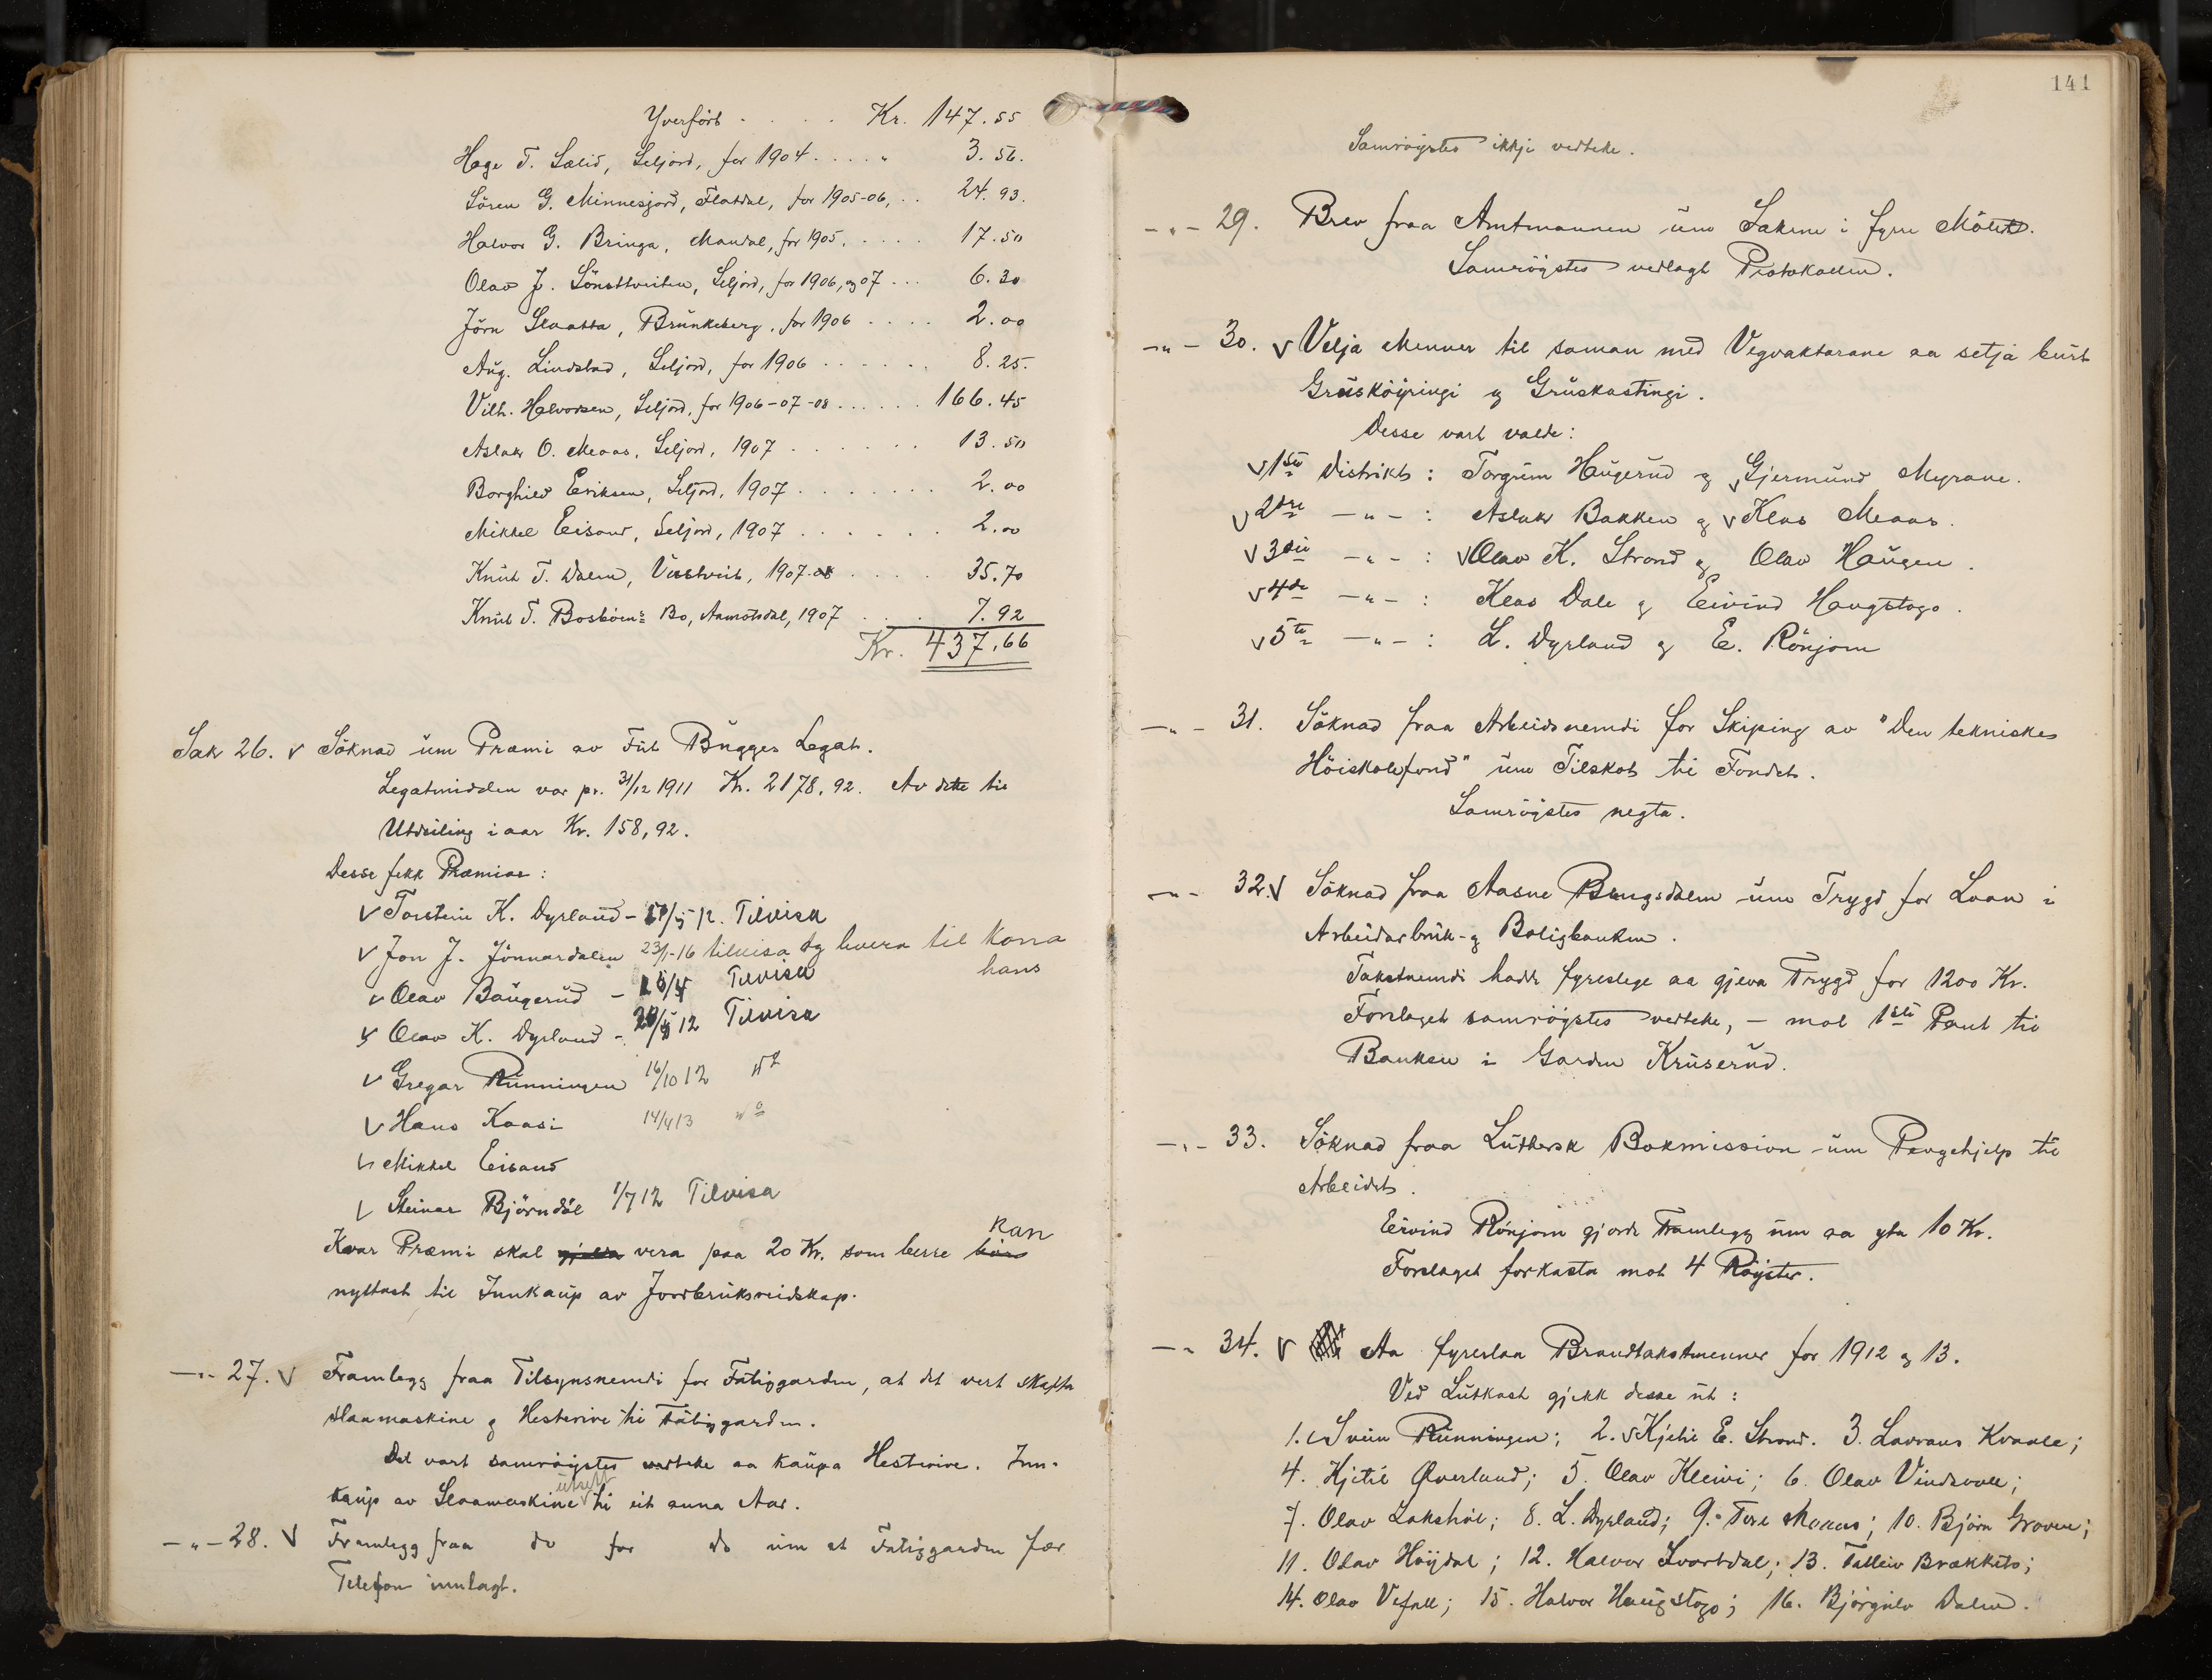 Yverfört . . . . Kr. 147.55
Hage T. Lælid, Seljord, for 1904 . . . . „ 3.56.
Sören G. Minnesjord, Flatdal, for 1905-06, . . 24.93.
Halvor G. Bringa, Mandal, for 1905. . . . . 17.50
Olav J. Sönsttveiten, Seljord, for 1906, og 07 . . . 6.30
Jörn Slaatta, Brunkeberg, for 1906 . . . . 2.00
Aug. Lindstad, Seljord, for 1906 . . . . . . 8.25.
Vilh. Halvorsen, Seljord, for 1906-07-08 . . . . . . 166.45
Aslak O. Meaas, Seljord, 1907 . . . . . . 13.50
Borghild Eriksen, Seljord, 1907 . . . . . . . 2.00
Mikkel Eisand, Seljord, 1907 . . . . . . 2.00
Knut T. Dalen, Vistveit, 1907-08 . . . . 35.70
Knut T. Bosböens Bo, Aamotsdal, 1907 . . . 7.92
Kr. 437.66
Sak 26. v Söknad um Præmi av Fut Bugges Legat.
Legatmidlen var pr. 31/12 1911 Kr. 2178.92. Av dette til
Utdeiling i aar Kr. 158,92.
Desse fekk Præmiar:
v Torstein K. Dyrland - /5 12. Tilvisa
v Jon J. Jönnardalen 23/1-16 tilvisa og levera til Kona
hans
v Olav Baugerud - 15/4 Tilvisa
v Olav K. Dyrland - 20/5 12 Tilvisa
v Gregar Runningen 16/10 12
v Hans Kaasi 14/4 13
v Mikkel Eisand
v Steinar Björndal 1/7 12 Tilvisa
Kvar Præmi skal vera paa 20 Kr. som berre kan
nyttast til Innkaup av Jordbruksreidskap.
-„- 27. v Framlegg fraa Tilsynsnemdi for Fatiggarden, at det vert skaffa
slaamaskine og Hesterive til Fatiggarden.
Det vart samröystes vedteke aa kaupa Hesterive. Inn-
kaup av Slaamaskine utsett til eit anna Aar.
-„- 28. v Framlegg fraa do for do um at Fatiggarden fær
Telefon innlagt.
141
Samröystes ikkje vedteke.
-„- 29. Brev fraa Amtmannen um Sakene i fyrre Mötet.
Samröystes vedlagt Protokollen.
-„- 30. v Velja Menner til saman med Vegvaktarane aa setja burt
Grusköyringi og Gruskastingi.
Desse vart valde:
v 1ste Distrikt: Torgrim Haugerud og v Gjermund Myrane.
v 2dre -„- : Aslak Bakken og v Kleas Meaas.
v 3die -„- : v Olav K. Strond og Olav Haugen.
v 4de -„- : Kleas Dale og Eivind Haugstogo.
v 5te -„- : L. Dyrland og E. Rönjom
-„- 31. Söknad fraa Arbeidsnemdi for Skiping av "Den tekniske
Höiskolefond" um Tilskot til Fondet.
Samröystes negta.
-„- 32. v Söknad fraa Aasne Bengsdalen um Trygd for Laan i
Arbeidarbruk- og Boligbanken.
Takstnemdi hadde fyreslege aa gjeva Trygd for 1200 Kr.
Forslaget samröystes vedteke, - mot 1ste Pant til
Banken i Garden Kruserud.
-„- 33. Söknad fraa Luthersk Bokmission um Pengehjelp til
Arbeidet.
Eivind Rönjom gjorde Framlegg um aa yta 10 Kr.
Forslaget forkasta mot 4 Röyster.
-„- 34. v Aa fyreslaa Brandtakstmenner for 1912 og 13.
Ved Lutkast gjekk desse ut:
1. v Svein Runningen; 2. v Kjetil E. Strond. 3. Lavrans Kvaale;
4. Kjetil Øverland; 5. Olav Kleivi; 6. Olav Vindsvall;
7. Olav Lakshöl; 8. L. Dyrland; 9. Tore Meaas; 10. Björn Groven;
11. Olav Höydal; 12. Halvor Svartdal; 13. Talleiv Brækketo;
14. Olav Vefall; 15. Halvor Haugstogo; 16. Björgulv Dalen.